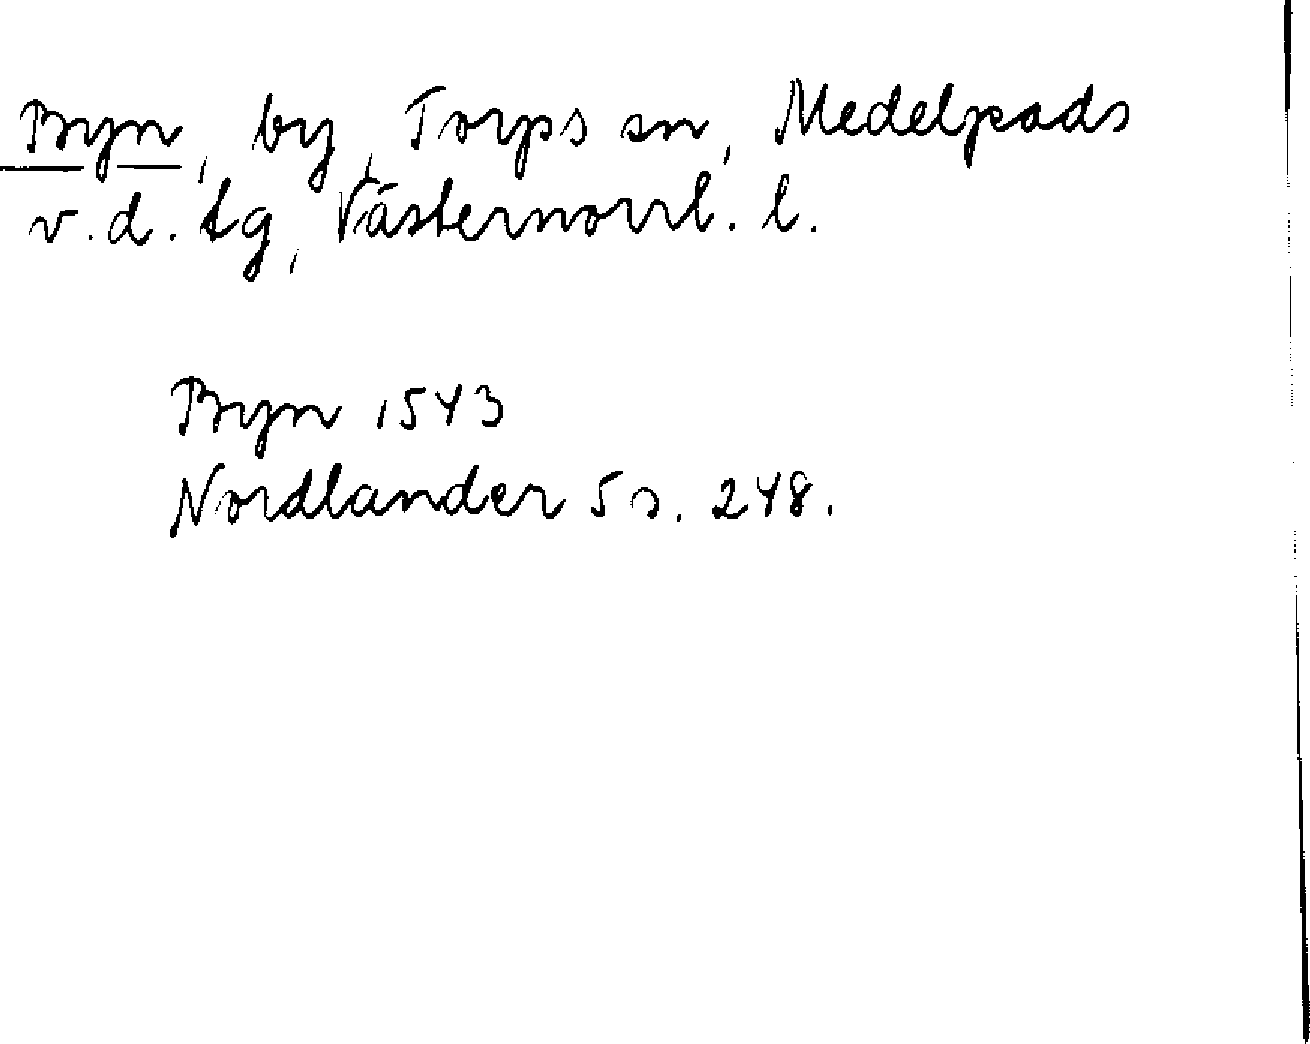 Byn, by, Torps sn, Medelpads
v.d. tg, Västernorrl. l.
Byn 1543
Nordlander 5 s. 248.